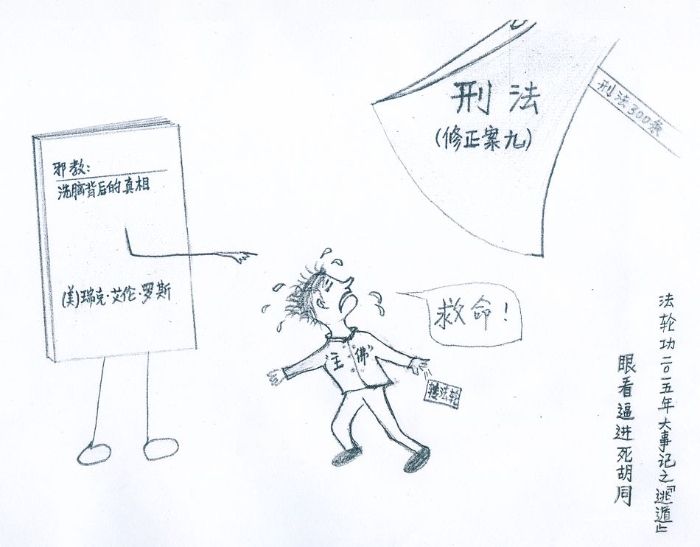 刑法
(修正案九)
刑法300条
邪教:
洗脑背后的真相
(美)瑞克·艾伦·罗斯
救命!
"主佛"
转法轮
法轮功二〇一五年大事记之『逃遁』
眼看逼进死胡同